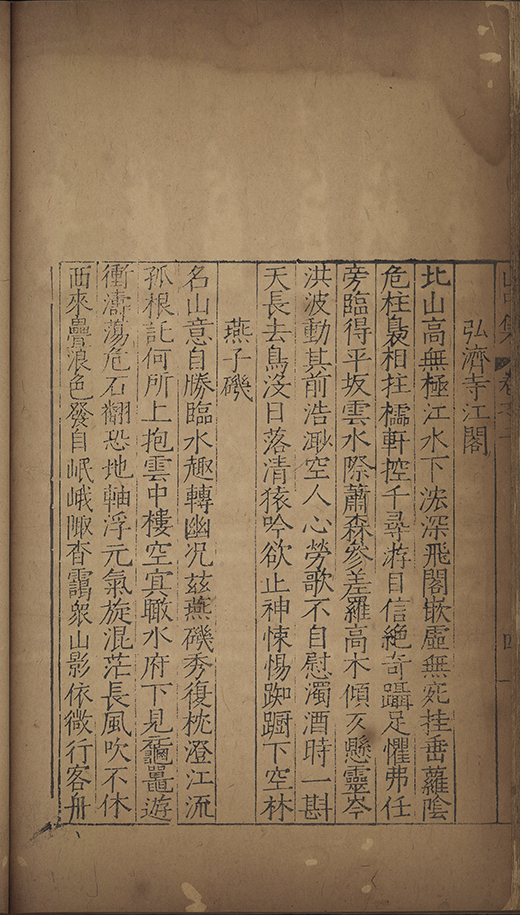 弘濟寺江閣
北山高無極江水下浤深飛閣嵌虛無宛挂垂蘿陰
危柱裊相拄櫺軒控千尋游目信絶奇躡足懼弗任
旁臨得平坂雲水際蕭森參差羅高木傾仄懸靈岑
洪波動其前浩渺空人心勞歌不自慰濁酒時一斟
天長去鳥沒日落清猿吟欲止神悚惕踟躕下空林
燕子磯
名山意自勝臨水趣轉幽况兹燕磯秀復枕澄江流
孤根託何所上抱雲中樓空㝠瞰水府下見黿鼉遊
衝濤蕩危石翻恐地軸浮元氣旋混茫長風吹不休
西來疊浪色發自岷峨陬杳靄衆山影依微行客舟